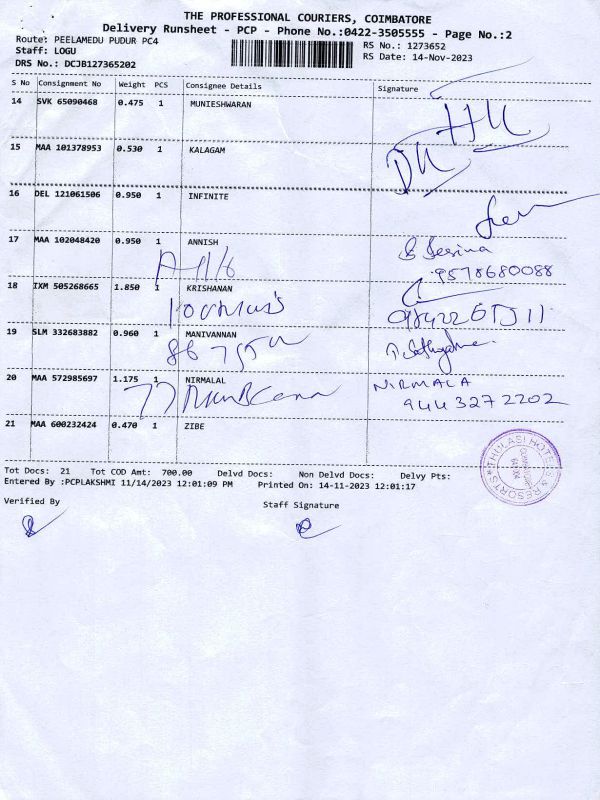 THE PROFESSIONAL COURIERS, COIMBATORE
Delivery Runsheet - PCP - Phone No.:0422-3505555 - Page No.:2
Route: PEELAMEDU PUDUR PC4
Staff: LOGU
RS No.: 1273652
DRS No.: DCJB127365202
RS Date: 14-Nov-2023
S No Consignment No Weight PCS Consignee Details Signature
14 SVK 65090468 0.475 1 MUNIESHWARAN
15 MAA 101378953 0.530 1 KALAGAM
16 DEL 121061506 0.950 1 INFINITE
17 MAA 102048420 0.950 1 ANNISH
9578680088
18 IXM 505268665 1.850 1 KRISHANAN
19 SLM 332683882 0.960 1 MANIVANNAN
20 MAA 572985697 1.175 1 NIRMALAL
NIRMALA
9443272202
21 MAA 600232424 0.470 1 ZIBE
THULASI HOTELS & RESORTS
Tot Docs: 21 Tot COD Amt: 700.00 Delvd Docs: Non Delvd Docs: Delvy Pts:
Entered By :PCPLAKSHMI 11/14/2023 12:01:09 PM Printed On: 14-11-2023 12:01:17
Verified By
Staff Signature